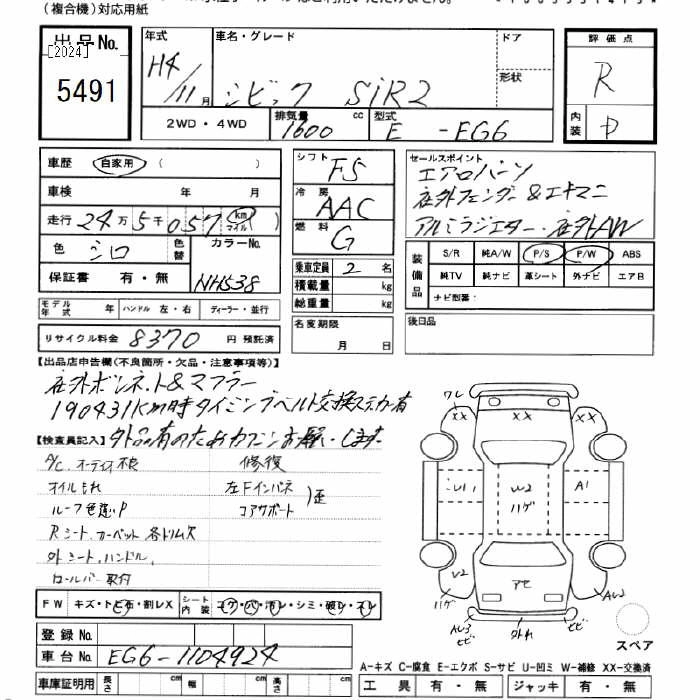 (複合機)対応用紙
出品No. [2024] 5491
年式 H4/11月
車名・グレード シビック SiR2
ドア
形状
評価点 R
内装 D
2WD・4WD
排気量 1600 cc
型式 E-EG6
車歴 自家用 ( )
車検 年 月
走行 24万5千057 km マイル
色 シロ 色替 カラーNo. NH538
保証書 有・無
シフト F5
冷房 AAC
燃料 G
乗車定員 2名
積載量 kg
総重量 kg
セールスポイント
エアロパーツ
社外フェンダー&エキマニ
アルミラジエター・社外AW
装備品 S/R 純A/W P/S P/W ABS
純TV 純ナビ 革シート 外ナビ エアB
ナビ型番:
モデル年式 年 ハンドル 左・右 ディーラー・並行
リサイクル料金 8370 円 預託済
名変期限 月 日
後日品
【出品店申告欄(不良箇所・欠品・注意事項等)】
社外ボンネット&マフラー
190431K m時タイミングベルト交換ステッカー有
【検査員記入】
A/C、オーディオ不良
修復
オイルもれ
左Fインパネ
コアサポート
歪
ルーフ色違い
Rシート、カーペット 各トリム欠
外シート、ハンドル、
ロールバー取付
FW キズ・トビ石・割レX
シート内装 コゲ・穴・汚レ・シミ・破レ・スレ
登録No.
車台No. EG6-1104924
車庫証明用 長さ cm 幅 cm 高さ cm
ワレ
XX XX XX
U1 W2 ハゲ A1
W2 ハゲ
アセ
AW3 ビビ
外れ
ビビ
AW2
スペア
A-キズ C-腐食 E-エクボ S-サビ U-凹ミ W-補修 XX-交換済
工具 有・無 ジャッキ 有・無